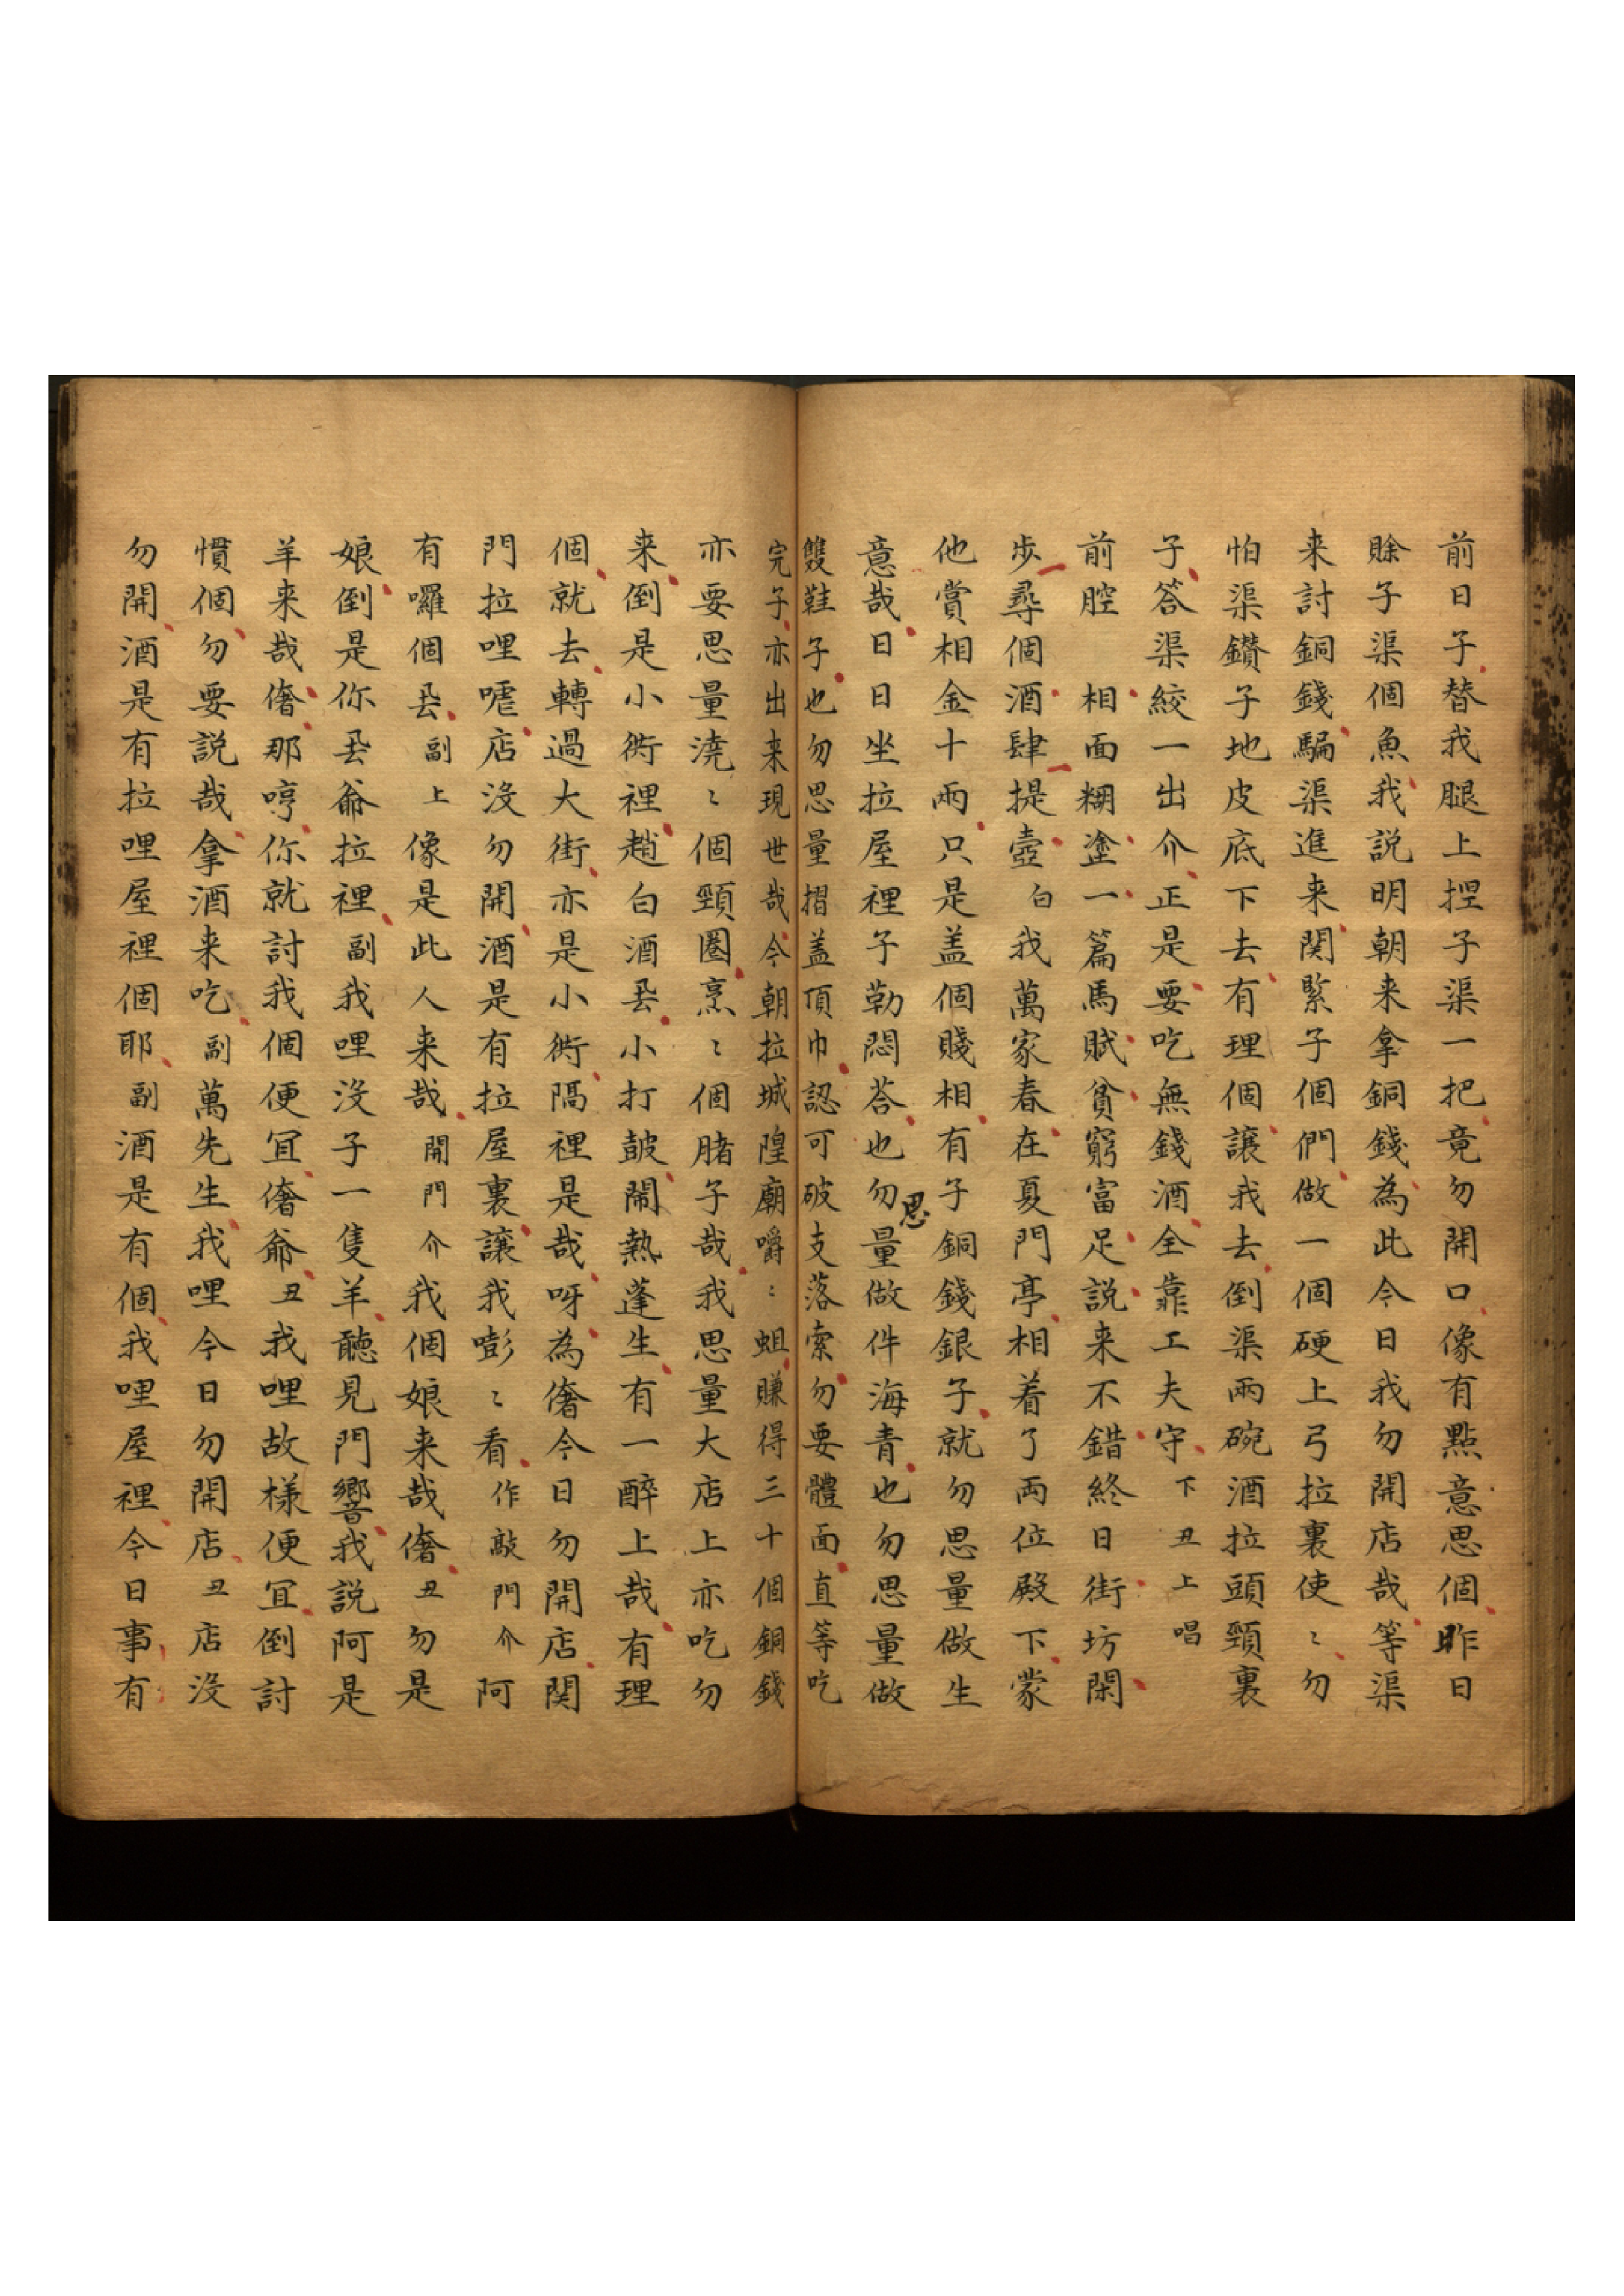 前日子替我腿上揑子渠一把竟勿開口像有點意思個昨日
賒子渠個魚我説明朝来拿銅錢為此今日我勿開店哉等渠
来討銅錢騙渠進来関緊子個們做一個硬上弓拉裏使〻勿
怕渠鑽子地皮底下去有理個讓我去倒渠兩碗酒拉頭頸裏
子答渠絞一出介正是要吃無錢酒全靠工夫守下丑上唱
前腔 相面糊塗一篇馬賦貧窮富足説来不錯終日街坊閑
步尋個酒肆提壺白我萬家春在夏門亭相着了両位殿下蒙
他賞相金十兩只是盖個賤相有子銅錢銀子就勿思量做生
意哉日日坐拉屋裡子勒悶荅也勿思量做件海青也勿思量做
雙鞋子也勿思量摺盖頂巾認可破支落索勿要體面直等吃
完子亦出来現世哉今朝拉城隍廟嚼〻蛆賺得三十個銅錢
亦要思量澆〻個頸圈烹〻個腊子哉我思量大店上亦吃勿
来倒是小衖裡趙白酒厾小打皷鬧熱蓬生有一醉上哉有理
個就去轉過大街亦是小衖隔裡是哉呀為偺今日勿開店関
門拉哩嚯店没勿開酒是有拉屋裏讓我嘭〻看作敲門介阿
有囉個厾副上像是此人来哉開門介我個娘来哉偺丑勿是
娘倒是你厾爺拉裡副我哩没子一隻羊聽見門響我説阿是
羊来哉偺那哼你就討我個便冝偺爺丑我哩故様便冝倒討
慣個勿要説哉拿酒来吃副萬先生我哩今日勿開店丑店没
勿開酒是有拉哩屋裡個耶副酒是有個我哩屋裡今日事有